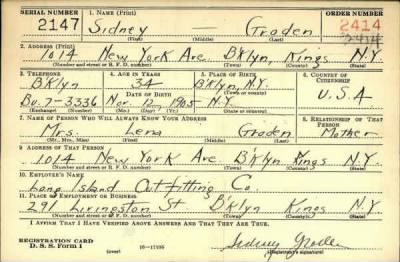 SERIAL NUMBER 1. NAME (Print) ORDER NUMBER
2147 Sidney — Groden 2414
(First) (Middle) (Last) 2414
2. ADDRESS (Print)
1014 New York Ave B'klyn, Kings N.Y.
(Number and street or R. F. D. number) (Town) (County) (State)
3. TELEPHONE 4. AGE IN YEARS 5. PLACE OF BIRTH 6. COUNTRY OF CITIZENSHIP
B'klyn 34 B'klyn, N.Y.
DATE OF BIRTH (Town or county)
Bu. 7-3336 Nov. 12 1905 N.Y. U.S.A
(Exchange) (Number) (Mo.) (Day) (Yr.) (State or country)
7. NAME OF PERSON WHO WILL ALWAYS KNOW YOUR ADDRESS 8. RELATIONSHIP OF THAT PERSON
Mrs. Lena Groden Mother
(Mr., Mrs., Miss) (First) (Middle) (Last)
9. ADDRESS OF THAT PERSON
1014 New York Ave B'klyn Kings N.Y.
(Number and street or R. F. D. number) (Town) (County) (State)
10. EMPLOYER'S NAME
Long Island Outfitting Co.
11. PLACE OF EMPLOYMENT OR BUSINESS
291 Livingston St B'klyn Kings N.Y.
(Number and street or R. F. D. number) (Town) (County) (State)
I AFFIRM THAT I HAVE VERIFIED ABOVE ANSWERS AND THAT THEY ARE TRUE.
REGISTRATION CARD
D. S. S. Form 1 (over) 16—17105 Sidney Groden